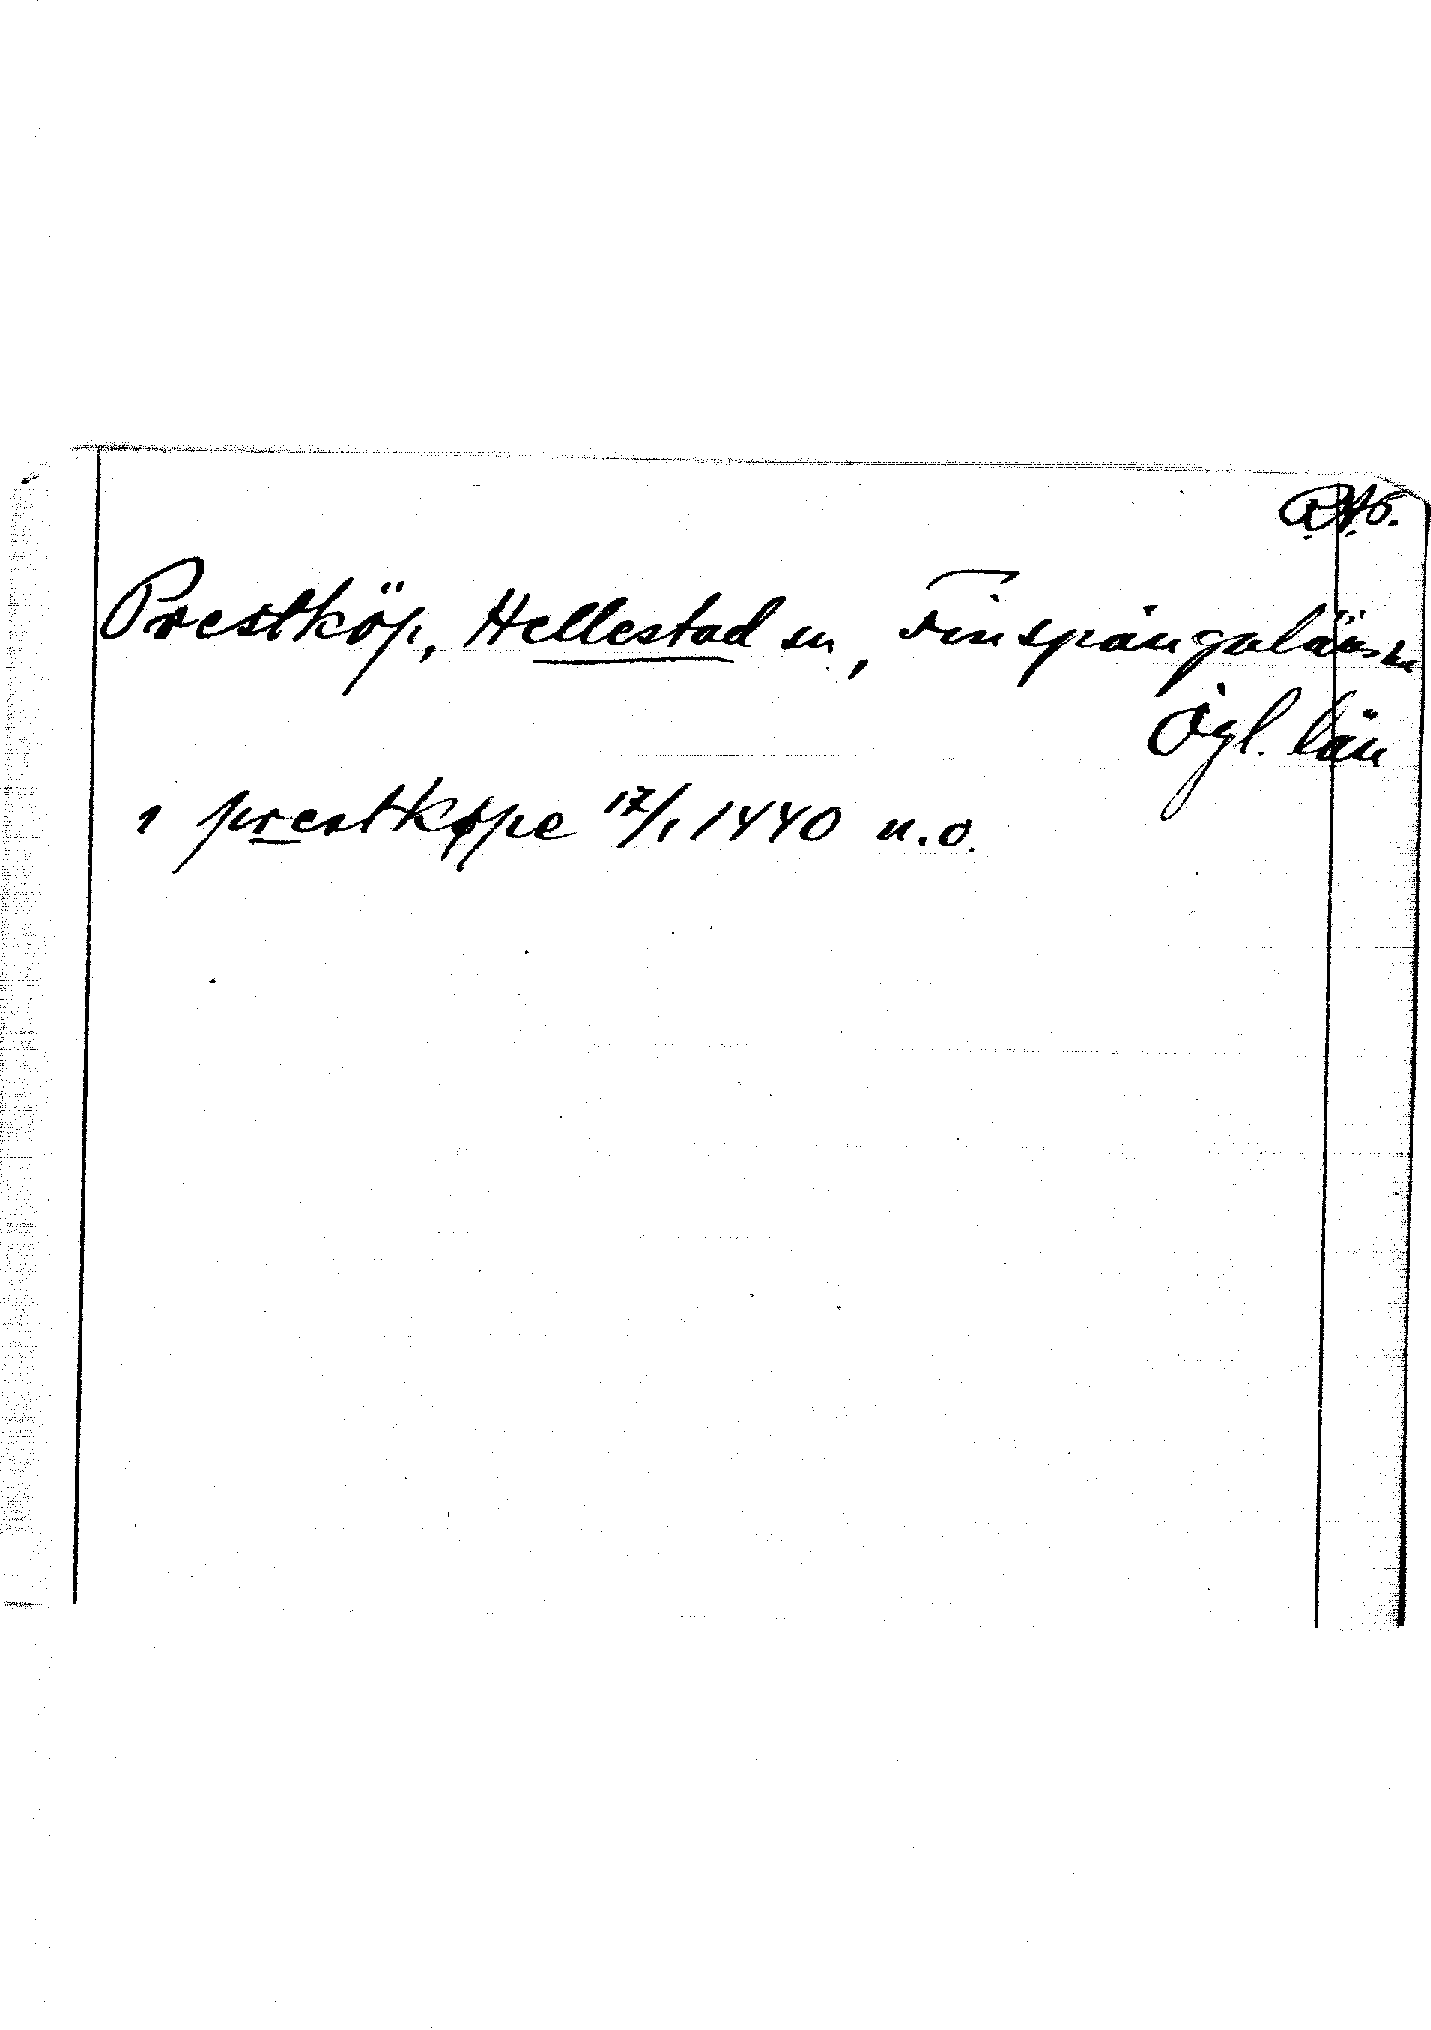 R.A.Ö.
Prestköp, Hellestad sn, Finspångaläns hd
Ögl. län
i prestkøpe 17/1 1440 n.o.